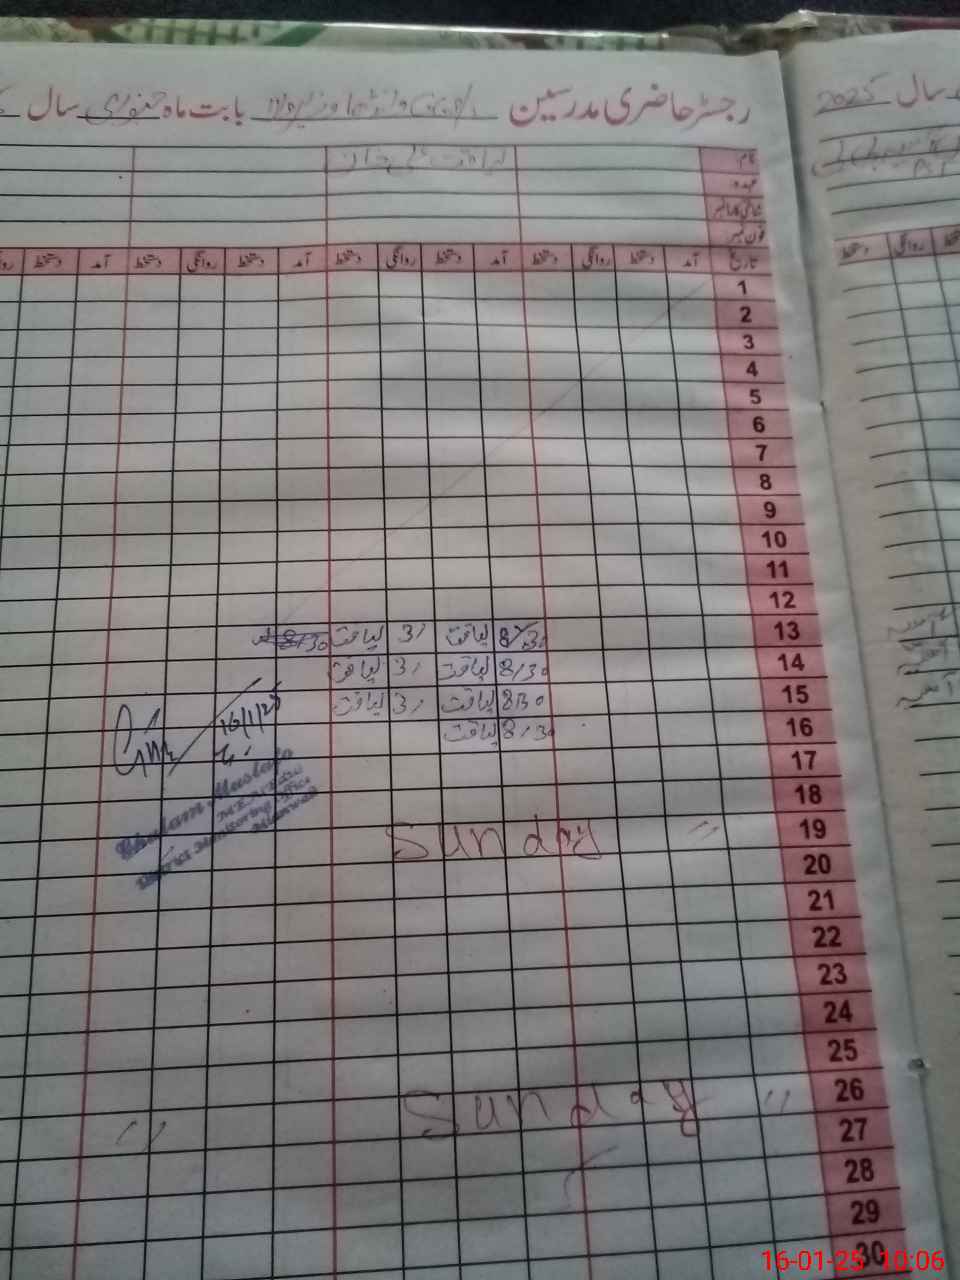 رجسٹر حاضری مدرسین بابت ماہ جنوری سال
سال 2025
نام:
لیاقت علی خان
عہدہ:
شناختی کارڈ نمبر
فون نمبر
تاریخ آمد دستخط روانگی دستخط آمد دستخط روانگی دستخط آمد دستخط روانگی دستخط آمد دستخط
روانگی دستخط
1
2
3
4
5
6
7
8
9
10
11
12
13 8/30 لیاقت 3/ لیاقت 8/30
14 8/30 لیاقت 3/ لیاقت
15 8/30 لیاقت 3/ لیاقت
16 8/30 لیاقت
16/1/25
17
18
Ghulam Mustafa
District Monitoring Office
Mianwali
19 Sunday "
20
21
22
23
24
25
26 Sunday "
27 "
28
29
30
16-01-25 10:06